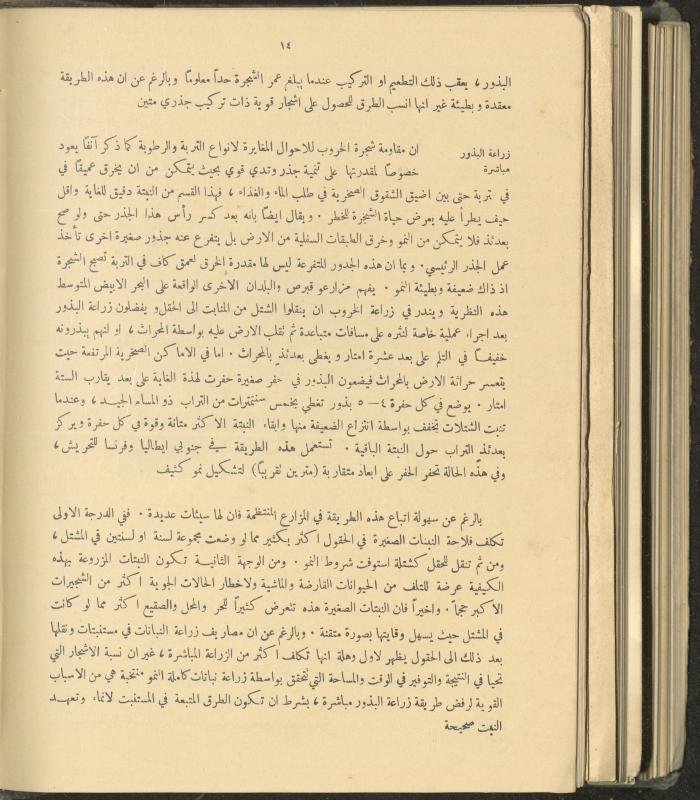 ١٤
البذور، يعقب ذلك التطعيم او التركيب عندما يبلغ عمر الشجرة حداً معلوماً وبالرغم عن ان هذه الطريقة
معقدة وبطيئة غير انها انسب الطرق للحصول على اشجار قوية ذات تركيب جذري متين
زراعة البذور
مباشرة
ان مقاومة شجرة الخروب للاحوال المغايرة لانواع التربة والرطوبة كما ذكر آنفاً يعود
خصوصاً لمقدرتها على تنمية جذر وتدي قوي بحيث يتمكن من ان يخرق عميقاً في
في تربة حتى بين اضيق الشقوق الصخرية في طلب الماء والغذاء، فهذا القسم من النبتة دقيق للغاية واقل
حيف يطرأ عليه يعرض حياة الشجرة للخطر. ويقال ايضاً بانه بعد كسر رأس هذا الجذر حتى ولو صح
بعدئذ فلا يتمكن من النمو وخرق الطبقات السفلية من الارض بل يتفرع عنه جذور صغيرة اخرى تأخذ
عمل الجذر الرئيسي. وبما ان هذه الجذور المتفرعة ليس لها مقدرة الخرق لعمق كاف في التربة تصبح الشجرة
اذ ذاك ضعيفة وبطيئة النمو. يفهم مزارعو قبرص والبلدان الاخرى الواقعة على البحر الابيض المتوسط
هذه النظرية ويندر في زراعة الخروب ان ينقلوا الشتل من المنابت الى الحقل ويفضلون زراعة البذور
بعد اجراء عملية خاصة لنثره على مسافات متباعدة ثم تقلب الارض عليه بواسطة المحراث، او انهم يبذرونه
خفيفاً في التلم على بعد عشرة امتار ويغطى بعدئذٍ بالمحراث. اما في الاماكن الصخرية المرتفعة حيث
يتعسر حراثة الارض بالمحراث فيضعون البذور في حفر صغيرة حفرت لهذه الغاية على بعد يقارب الستة
امتار. يوضع في كل حفرة ٤-٥ بذور تغطي بخمس سنتمترات من التراب ذو المسام الجيد، وعندما
تنبت الشتلات تخفف بواسطة انتزاع الضعيفة منها وابقاء النبتة الاكثر متانة وقوة في كل حفرة ويركز
بعدئذ التراب حول النبتة الباقية. تستعمل هذه الطريقة في جنوبي ايطاليا وفرنسا للتحريش،
وفي هذه الحالة تحفر الحفر على ابعاد متقاربة (مترين تقريباً) لتشكيل نمو كثيف
بالرغم عن سهولة اتباع هذه الطريقة في المزارع المنتظمة فان لها سيئات عديدة. ففي الدرجة الاولى
تكلف فلاحة النبتات الصغيرة في الحقول اكثر بكثير مما لو وضعت مجموعة لسنة او لسنتين في المشتل،
ومن ثم تنقل للحقل كشتلة استوفت شروط النمو. ومن الوجهة الثانية تكون النبتات المزروعة بهذه
الكيفية عرضة للتلف من الحيوانات القارضة والماشية ولاخطار الحالات الجوية اكثر من الشجيرات
الاكبر حجماً. واخيراً فان النبتات الصغيرة هذه تتعرض كثيراً للحر والمحل والصقيع اكثر مما لو كانت
في المشتل حيث يسهل وقايتها بصورة متقنة. وبالرغم عن ان مصاريف زراعة النباتات في مستنبتات ونقلها
بعد ذلك الى الحقول يظهر لاول وهلة انها تكلف اكثر من الزراعة المباشرة، غير ان نسبة الاشجار التي
تحيا في النتيجة والتوفير في الوقت والمساحة التي تتحقق بواسطة زراعة نباتات كاملة النمو منتخبة هي من الاسباب
القوية لرفض طريقة زراعة البذور مباشرة، بشرط ان تكون الطرق المتبعة في المستنبت لانماء وتعهد
النبت صحيحة